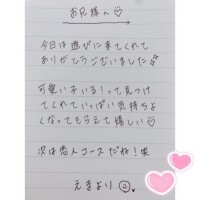 お兄様へ♡
今日は遊びに来てくれて
ありがとうございました
可愛い子いる!って見つけ
てくれていっぱい気持ちよ
くなってもらえて嬉しい♡
次は恋人コースだね!笑
えまより